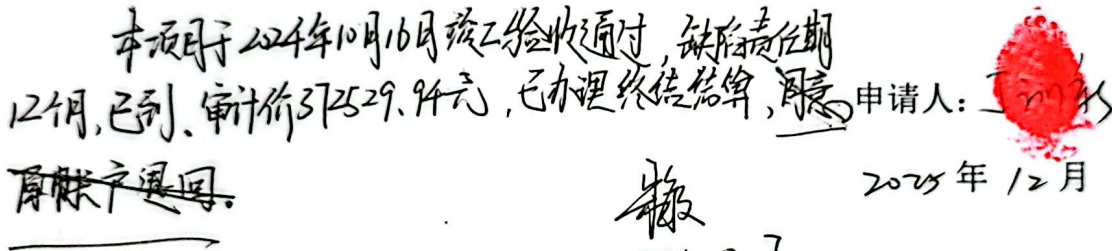 本项目于2024年10月16日竣工验收通过,缺陷责任期
12个月,已到、审计价372529.94元,已办理终结结算,同意
申请人:
原账户退回。
2025年12月